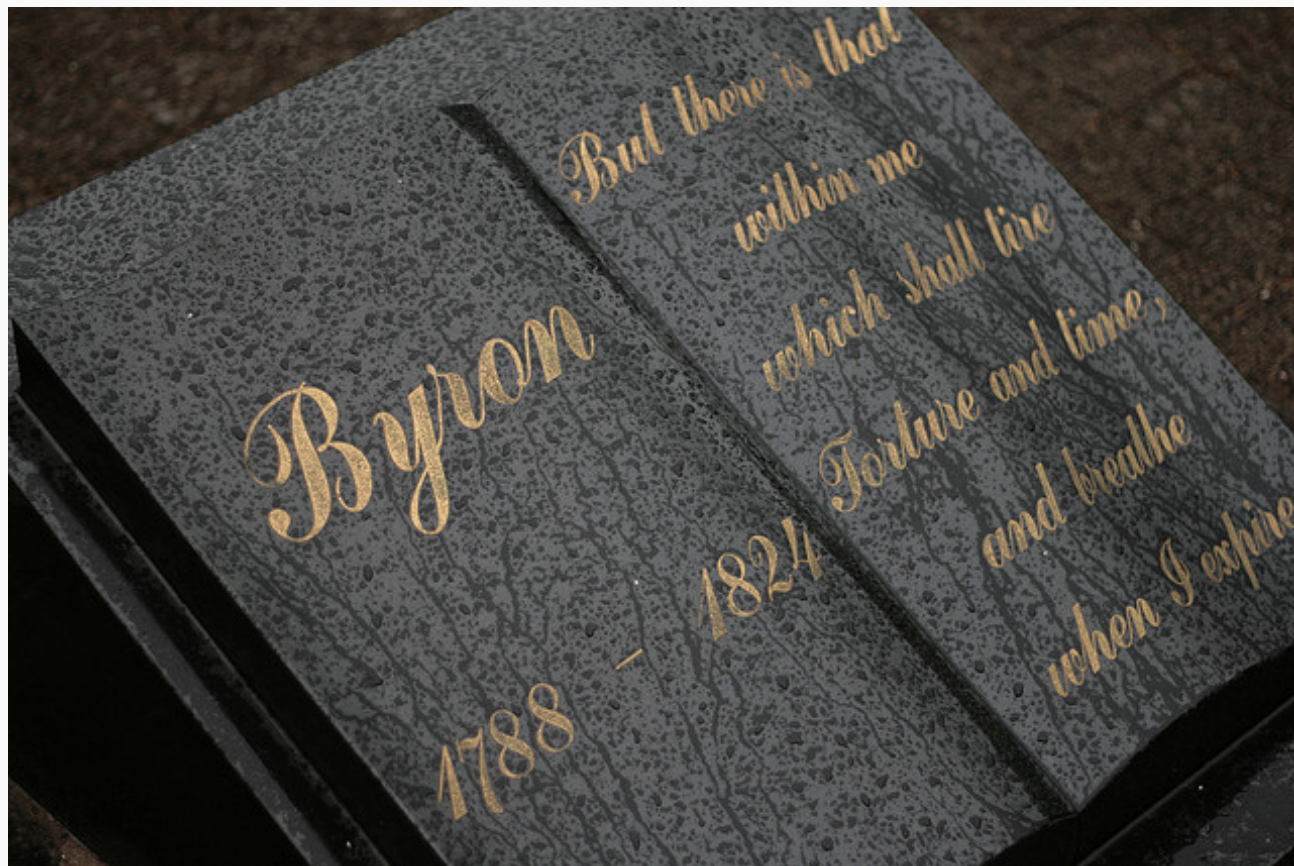 Byron
1788 – 1824
But there is that
within me
which shall tire
Torture and time,
and breathe
when I expire